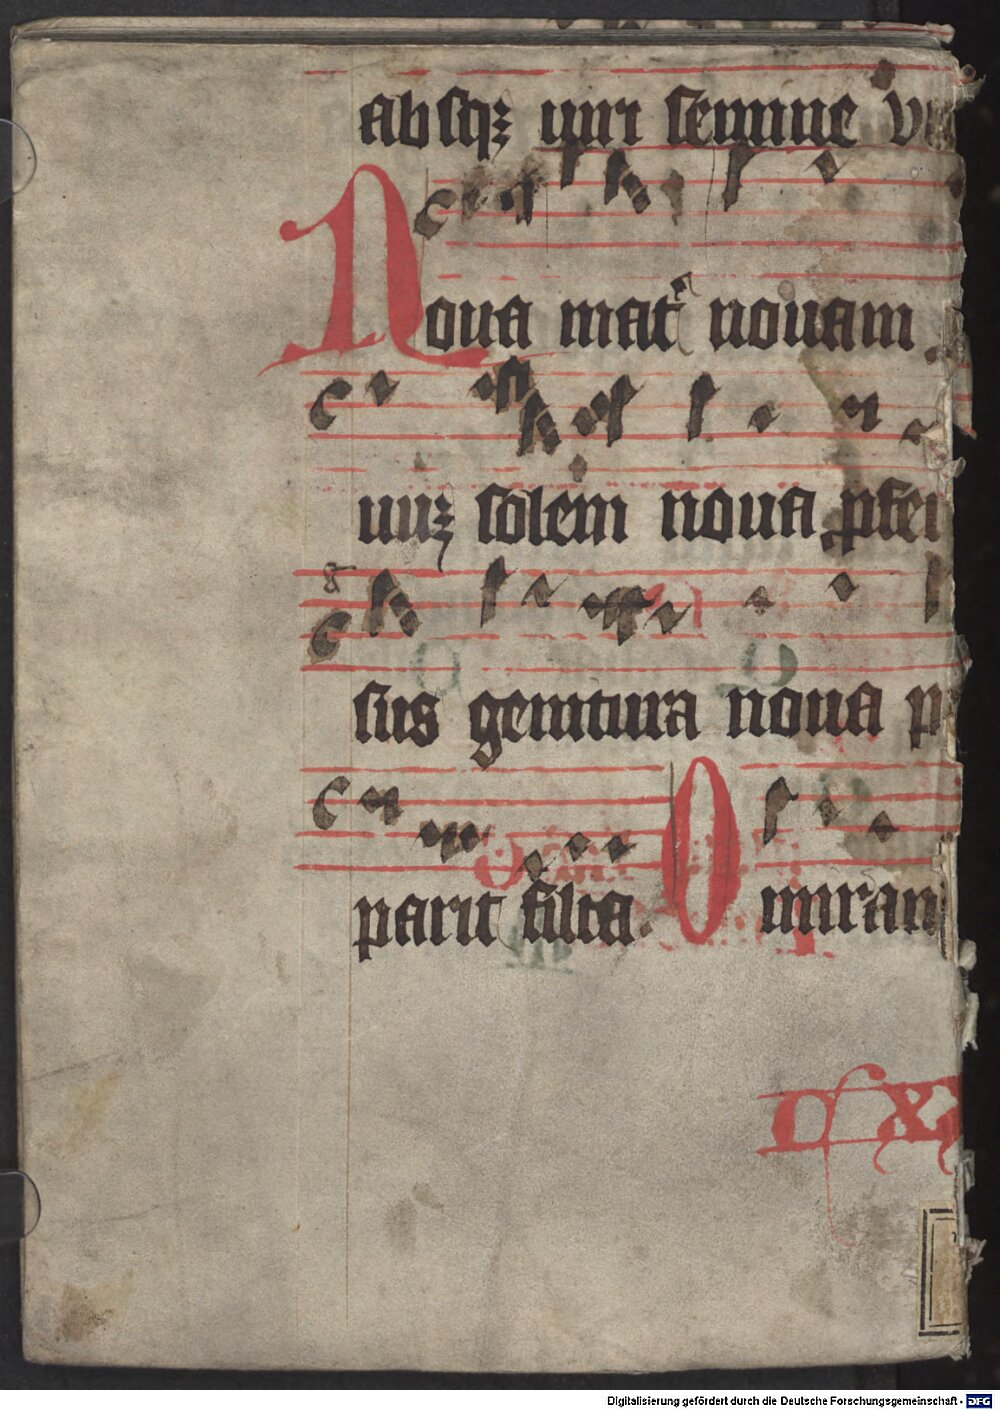 absqꝫ viri semine
Noua mat͛ nouam
uuꝫ solem noua
sus genitura noua
parit filia. O miran
Digitalisierung gefördert durch die Deutsche Forschungsgemeinschaft - DFG